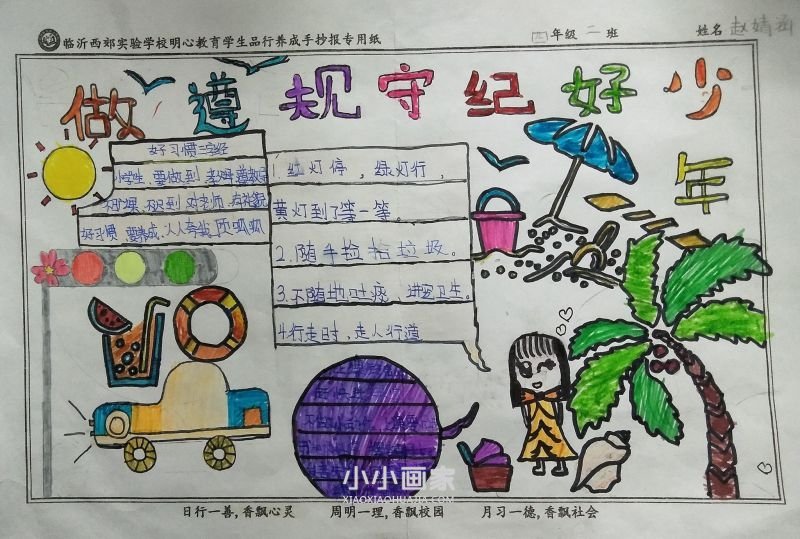 临沂西郊实验学校明心教育学生品行养成手抄报专用纸
四年级二班
姓名 赵婧涵
做遵规守纪好少年
好习惯三字经
小学生 要做到 孝父母 尊教
不旷课 不迟到 对老师 有礼貌
好习惯 要养成 人人夸 顶呱呱
1.红灯停，绿灯行，
黄灯到了等一等。
2.随手捡拾垃圾。
3.不随地吐痰，讲究卫生。
4.行走时，走人行道
小小画家
XIAOXIAOHUAJIA.COM
日行一善,香飘心灵 周明一理,香飘校园 月习一德,香飘社会